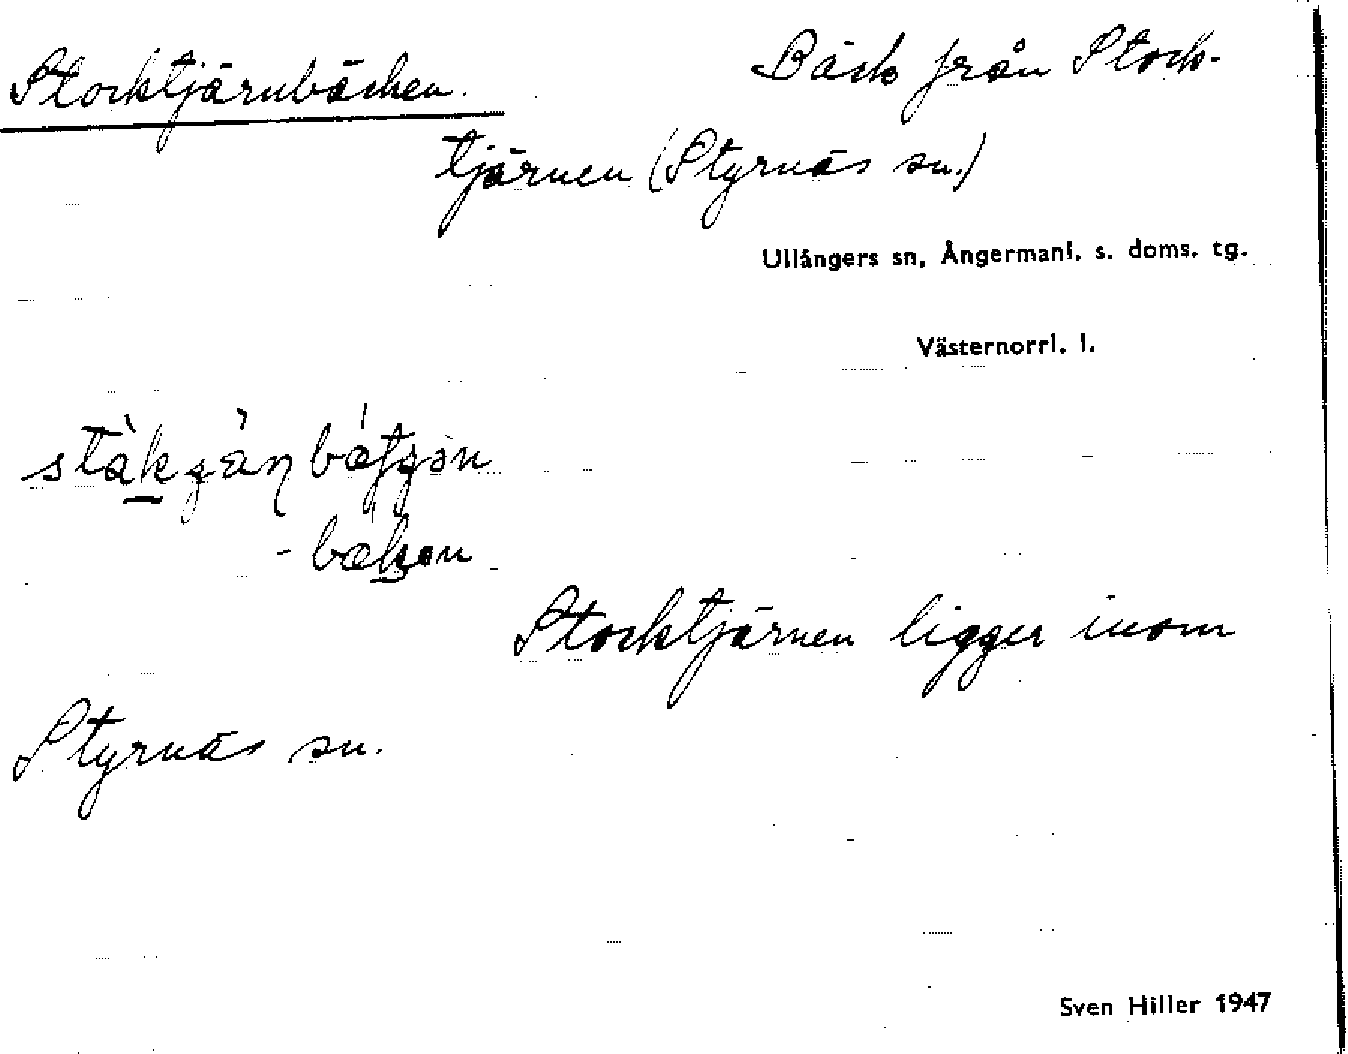 Stocktjärnbäcken. Bäck från Stock-
tjärnen (Styrnäs sn.)
Ullångers sn, Ångermanl. s. doms. tg.
Västernorrl. l.
Stocktjärnen ligger inom
Styrnäs sn.
Sven Hiller 1947